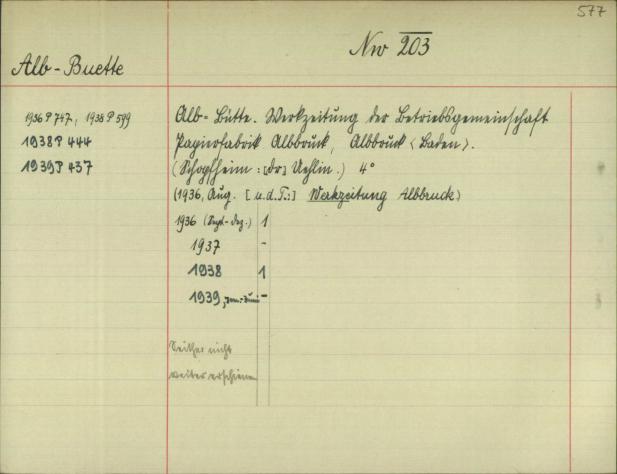 577
Nw 203
Alb-Buette
1936 P 747, 1938 P 599
1938 P 444
1939 P 437
Alb-Bütte. Werkzeitung der Betriebsgemeinschaft
Papierfabrik Albbruck, Albbruck <Baden>.
(Schopfheim: [Dr.] Uehlin.) 4°
(1936, Aug. [u.d.T.:] Werkzeitung Albbruck)
1936 (Sept-Dez.) 1
1937 -
1938 1
1939, Jan.-Juni -
Seither nicht
weiter erschienen